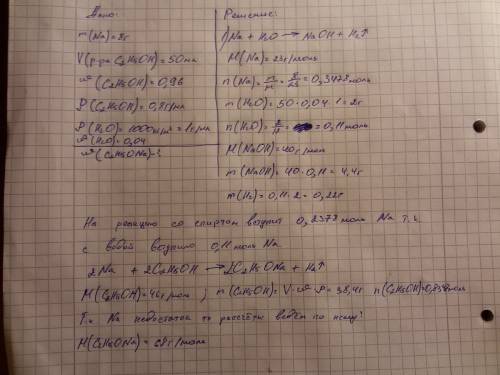 Дано:
m(Na)=8г
V(р-ра C₂H₅OH)=50мл
w(C₂H₅OH)=0,96
ρ(C₂H₅OH)=0,8г/мл
ρ(H₂O)=1000 =1г/мл
w(H₂O)=0,04
w(C₂H₅ONa)-?
Решение:
1) Na + H₂O → NaOH + H₂↑
M(Na)=23г/моль
n(Na)=m/M=8/23=0,3478моль
m(H₂O)=50·0,04·1=2г
n(H₂O)=2/18= =0,11моль
M(NaOH)=40г/моль
m(NaOH)=40·0,11=4,4г
m(H₂)=0,11·2=0,22г
На реакцию со спиртом вступит 0,2378 моль Na т.к.
с водой вступило 0,11 моль Na
2Na + 2C₂H₅OH → 2C₂H₅ONa + H₂↑
M(C₂H₅OH)=46г/моль; m(C₂H₅OH)=V·w·ρ=38,4г n(C₂H₅OH)=0,834моль
Т.к. Na недостаток то рассчёты ведём по нему!
M(C₂H₅ONa)=68г/моль